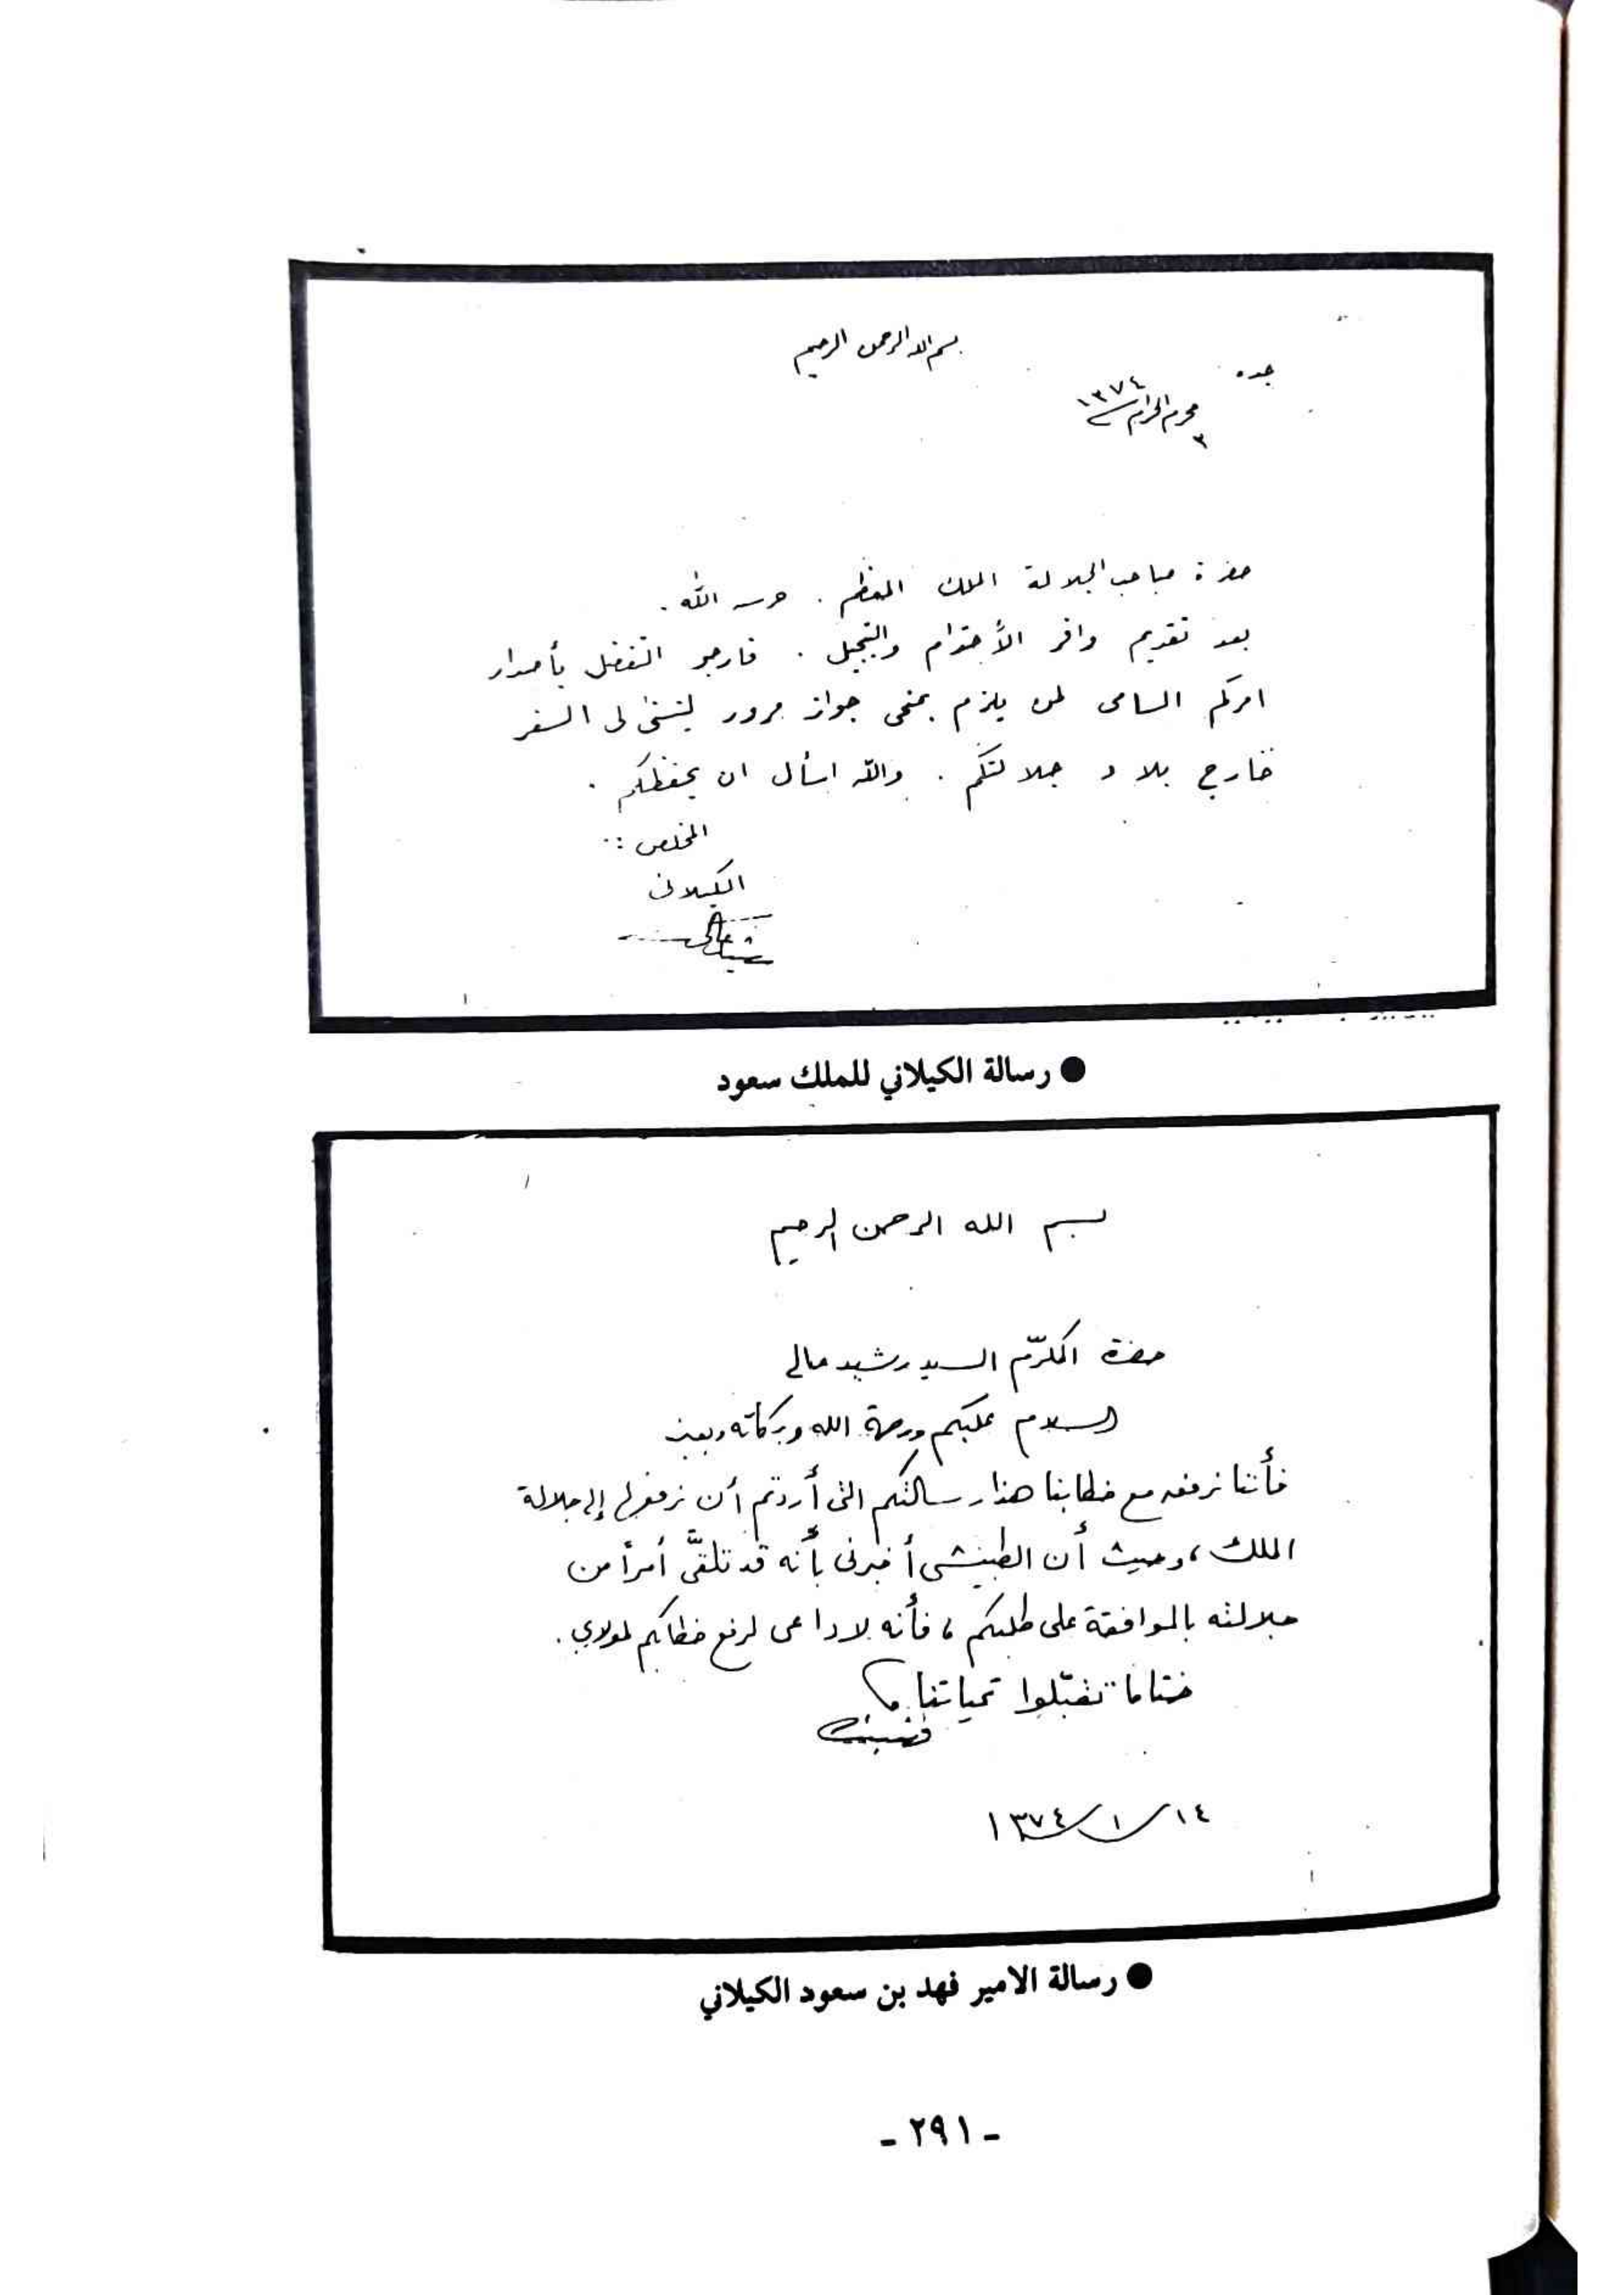 بسم الله الرحمن الرحيم
جده
٣ محرم الحرام ١٣٧٤
حضرة صاحب الجلالة الملك المعظم . حرسه الله .
بعد تقديم وافر الأحترام والتبجيل . فارجو التفضل بأصدار
امركم السامى لمن يلزم بمنحى جواز مرور ليتسنى لى السفر
خارج بلاد جلالتكم . والله اسأل ان يحفظكم .
المخلص :
الكيلانى
رشيد عالى
● رسالة الكيلاني للملك سعود
بسم الله الرحمن الرحيم
حضرة المكرّم السيد رشيد عالي
السلام عليكم ورحمة الله وبركاته وبعد
فأننا نرفعه مع خطابنا هذا رسالتكم التى أردتم أن نرفعها إلى جلالة
الملك، وحيث أن الطبيشى أخبرنى بأنه قد تلقّى أمراً من
جلالته بالموافقة على طلبكم، فأنه لا داعى لرفع خطابكم لمولاي .
ختاما تقبّلوا تحياتنا
١٤/١/١٣٧٤
● رسالة الامير فهد بن سعود الكيلاني
- ٢٩١ -